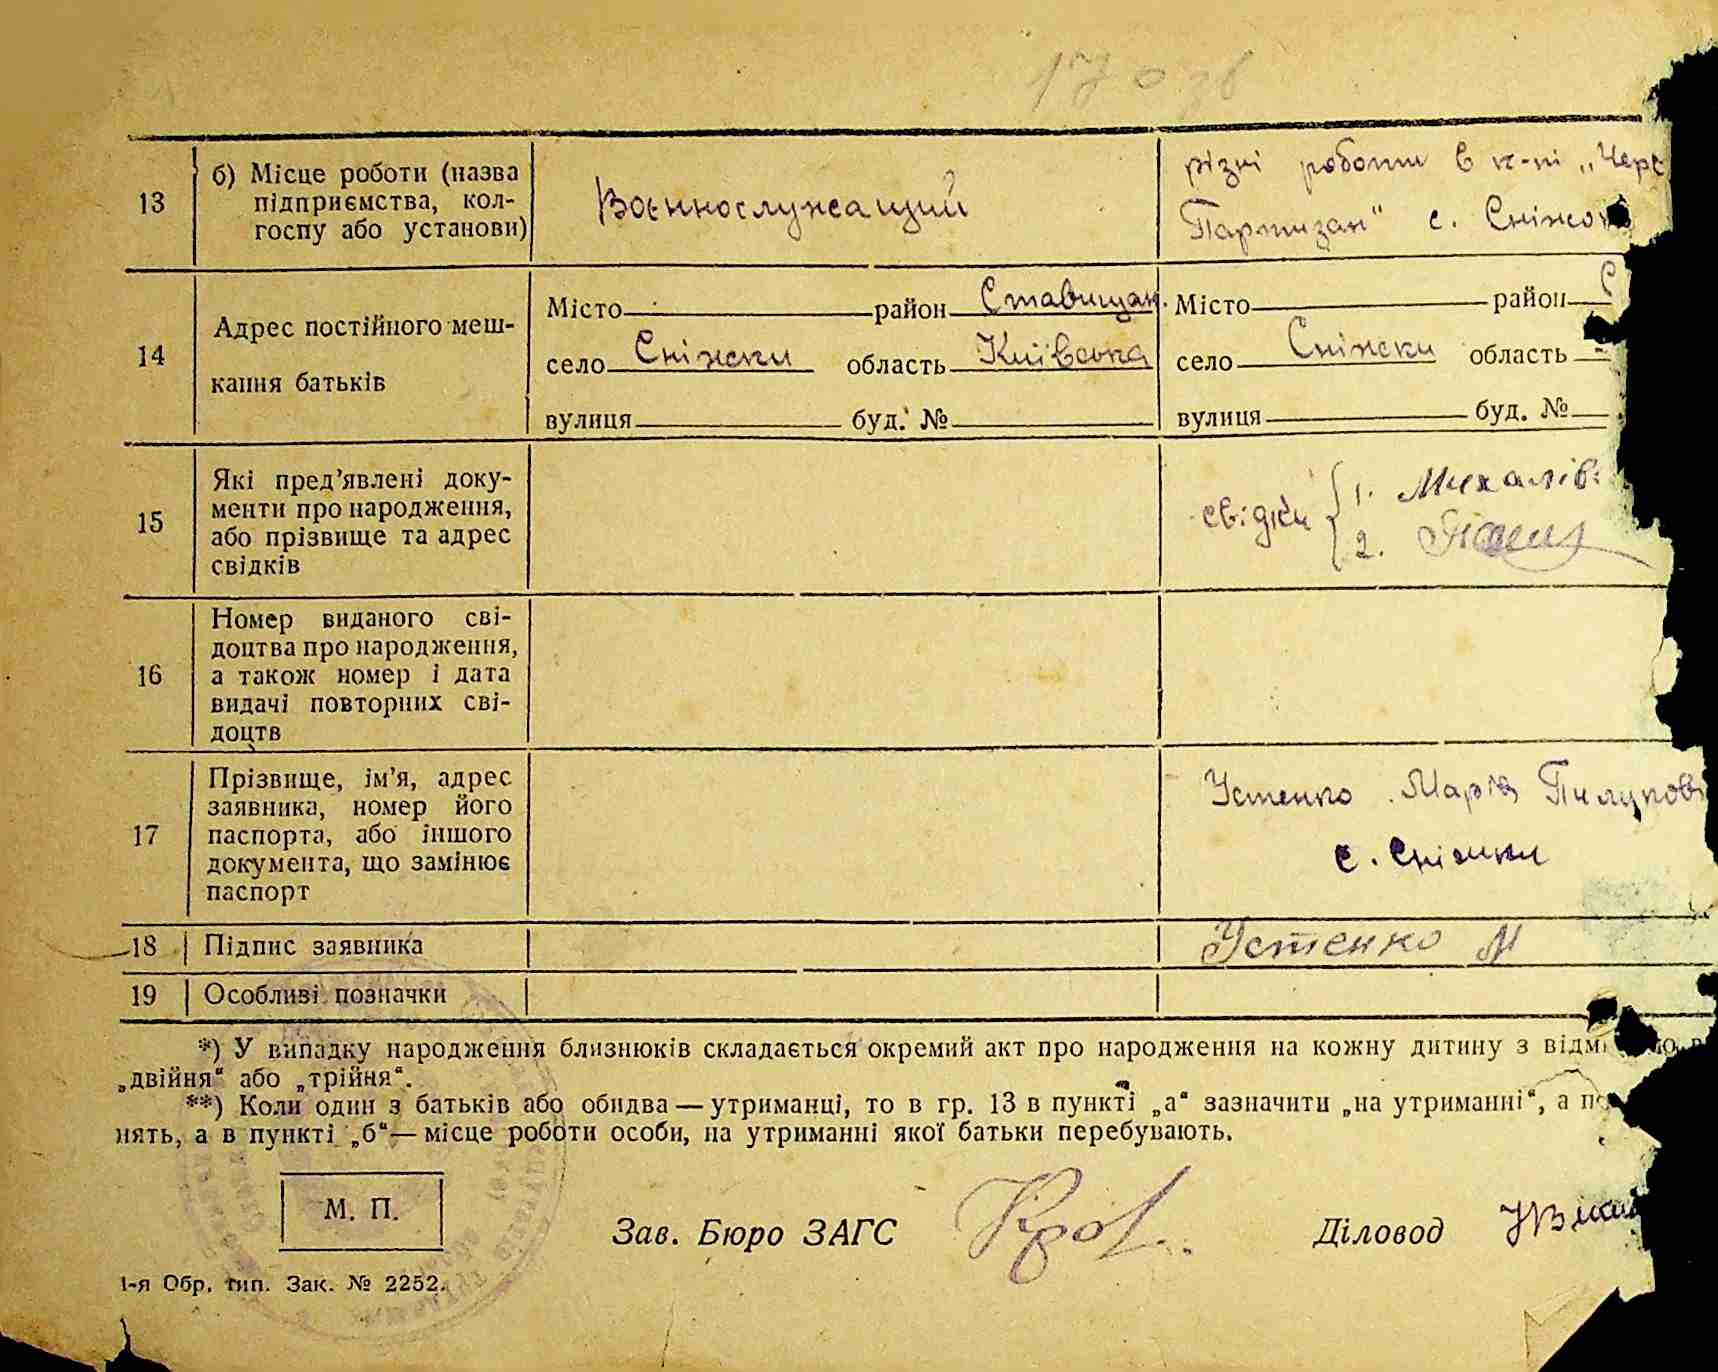 170 зв
13 б) Місце роботи (назва
підприємства, кол-
госпу або установи)
Воєннослужащий
різні роботи в к-пі „Черв
Партизан“ с. Сніжки
14 Адрес постійного меш-
кання батьків
Місто район Ставищан.
село Сніжки область Київська
вулиця буд. №
Місто район С
село Сніжки область
вулиця буд. №
15 Які пред’явлені доку-
менти про народження,
або прізвище та адрес
свідків
свідки 1. Михалів
2.
16 Номер виданого сві-
доцтва про народження,
а також номер і дата
видачі повторних сві-
доцтв
17 Прізвище, ім’я, адрес
заявника, номер його
паспорта, або іншого
документа, що замінює
паспорт
Устенко Марія Пилипові
с. Сніжки
18 Підпис заявника
Устенко М
19 Особливі позначки
*) У випадку народження близнюків складається окремий акт про народження на кожну дитину з відм
„двійня“ або „трійня“.
**) Коли один з батьків або обидва — утриманці, то в гр. 13 в пункті „а“ зазначити „на утриманні“, а по
нять, а в пункті „б“ — місце роботи особи, на утриманні якої батьки перебувають.
М. П.
Зав. Бюро ЗАГС
Діловод
1-я Обр. тип. Зак. № 2252.